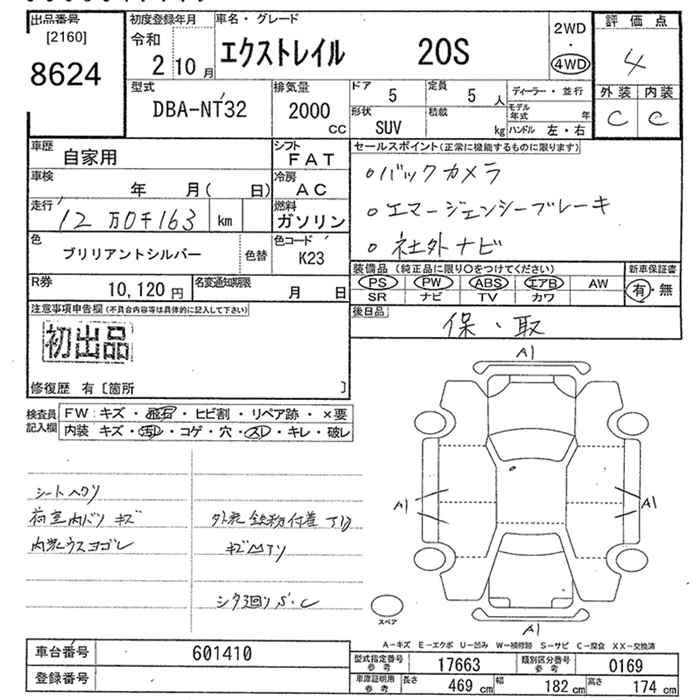 出品番号
[2160]
8624
初度登録年月
令和
2 10月
車名・グレード
エクストレイル 20S
2WD
・
4WD
評価点
4
外装 内装
C C
型式
DBA-NT32
排気量
2000
CC
ドア
5
定員
5 人
形状
SUV
積載
kg
ディーラー・並行
モデル年式 年
ハンドル 左・右
車歴
自家用
シフト
FAT
車検
年 月( 日)
冷房
AC
走行
12万0千163 km
燃料
ガソリン
色
ブリリアントシルバー
色替
色コード
K23
R券
10,120円
名変通知期限
月 日
セールスポイント(正常に機能するものに限ります)
○バックカメラ
○エマージェンシーブレーキ
○社外ナビ
装備品 (純正品に限り○をつけてください)
PS PW ABS エアB AW
SR ナビ TV カワ
新車保証書
有・無
後日品
保・取
注意事項申告欄(不具合内容等は具体的に記入して下さい)
初出品
修復歴 有〔箇所 〕
検査員
記入欄
FW:キズ・飛石・ヒビ割・リペア跡・×要
内装 キズ・汚レ・コゲ・穴・スレ・キレ・破レ
シートヘタリ
荷室内ハリ キズ
内装ウスヨゴレ
外装鉄粉付着
シタ廻りS・C
A1
A1
A1
A1
スペア
A-キズ E-エクボ U-凹み W-補修跡 S-サビ C-腐食 XX-交換済
車台番号
601410
登録番号
型式指定番号
参考
17663
類別区分番号
参考
0169
車庫証明用
参考
長さ
469 cm
幅
182 cm
高さ
174 cm